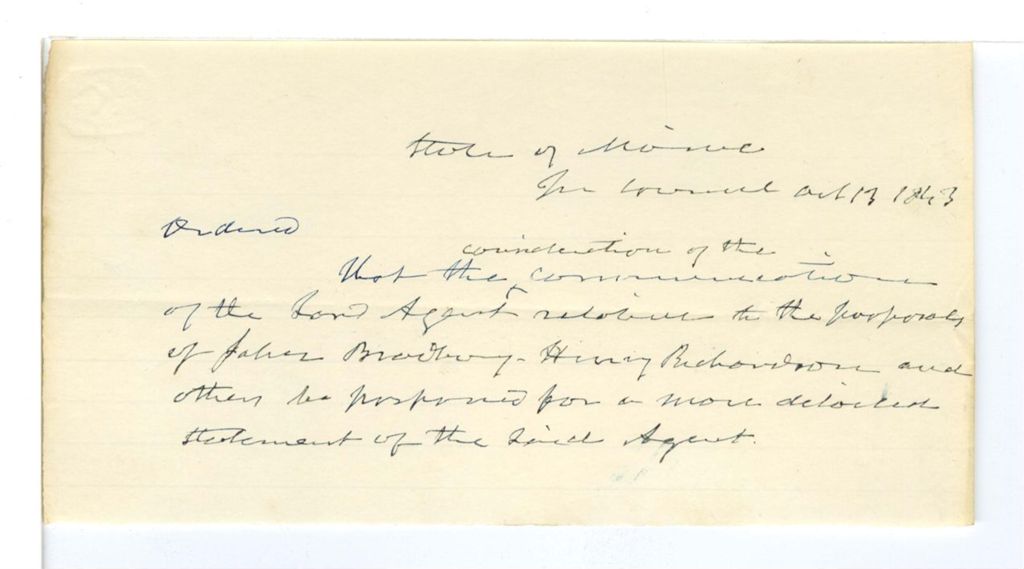 State of Maine
In Council Oct 13 1843
Ordered
consideration of the
That the ^ communication
of the Land Agent relative to the proposals
of Jabez Bradbury - Henry Richardson and
others be postponed for a more detailed
statement of the said Agent.